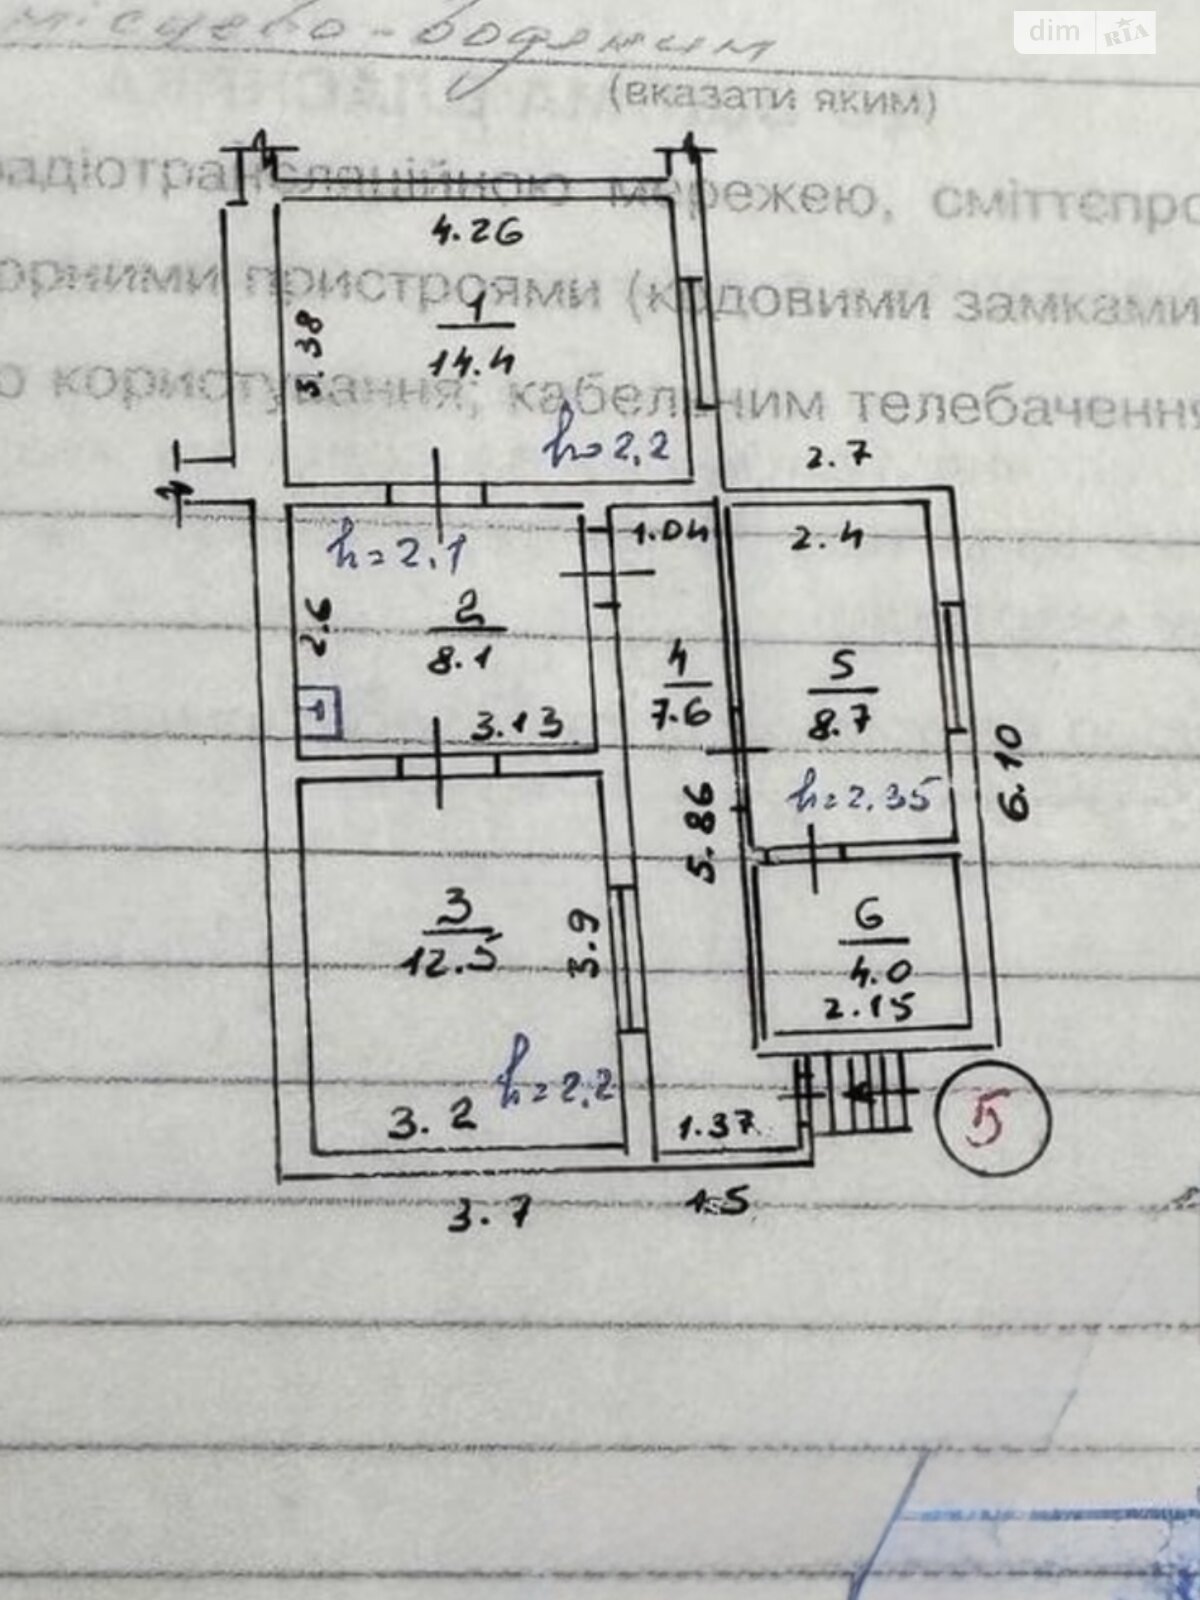 місцево-водяним
dim RIA
(вказати яким)
радіотрансляційною мережею, сміттєпро
орними пристроями (кодовими замками
о користування; кабельним телебачення
4.26
1
14.4
3.38
h=2,2
2.7
h=2.1
1.04
2.4
2.6
2
8.1
3.13
4
7.6
5
8.7
h=2.35
6.10
5.86
3
12.5
3.9
6
4.0
2.15
h=2.2
3.2
1.37
5
3.7
1.5